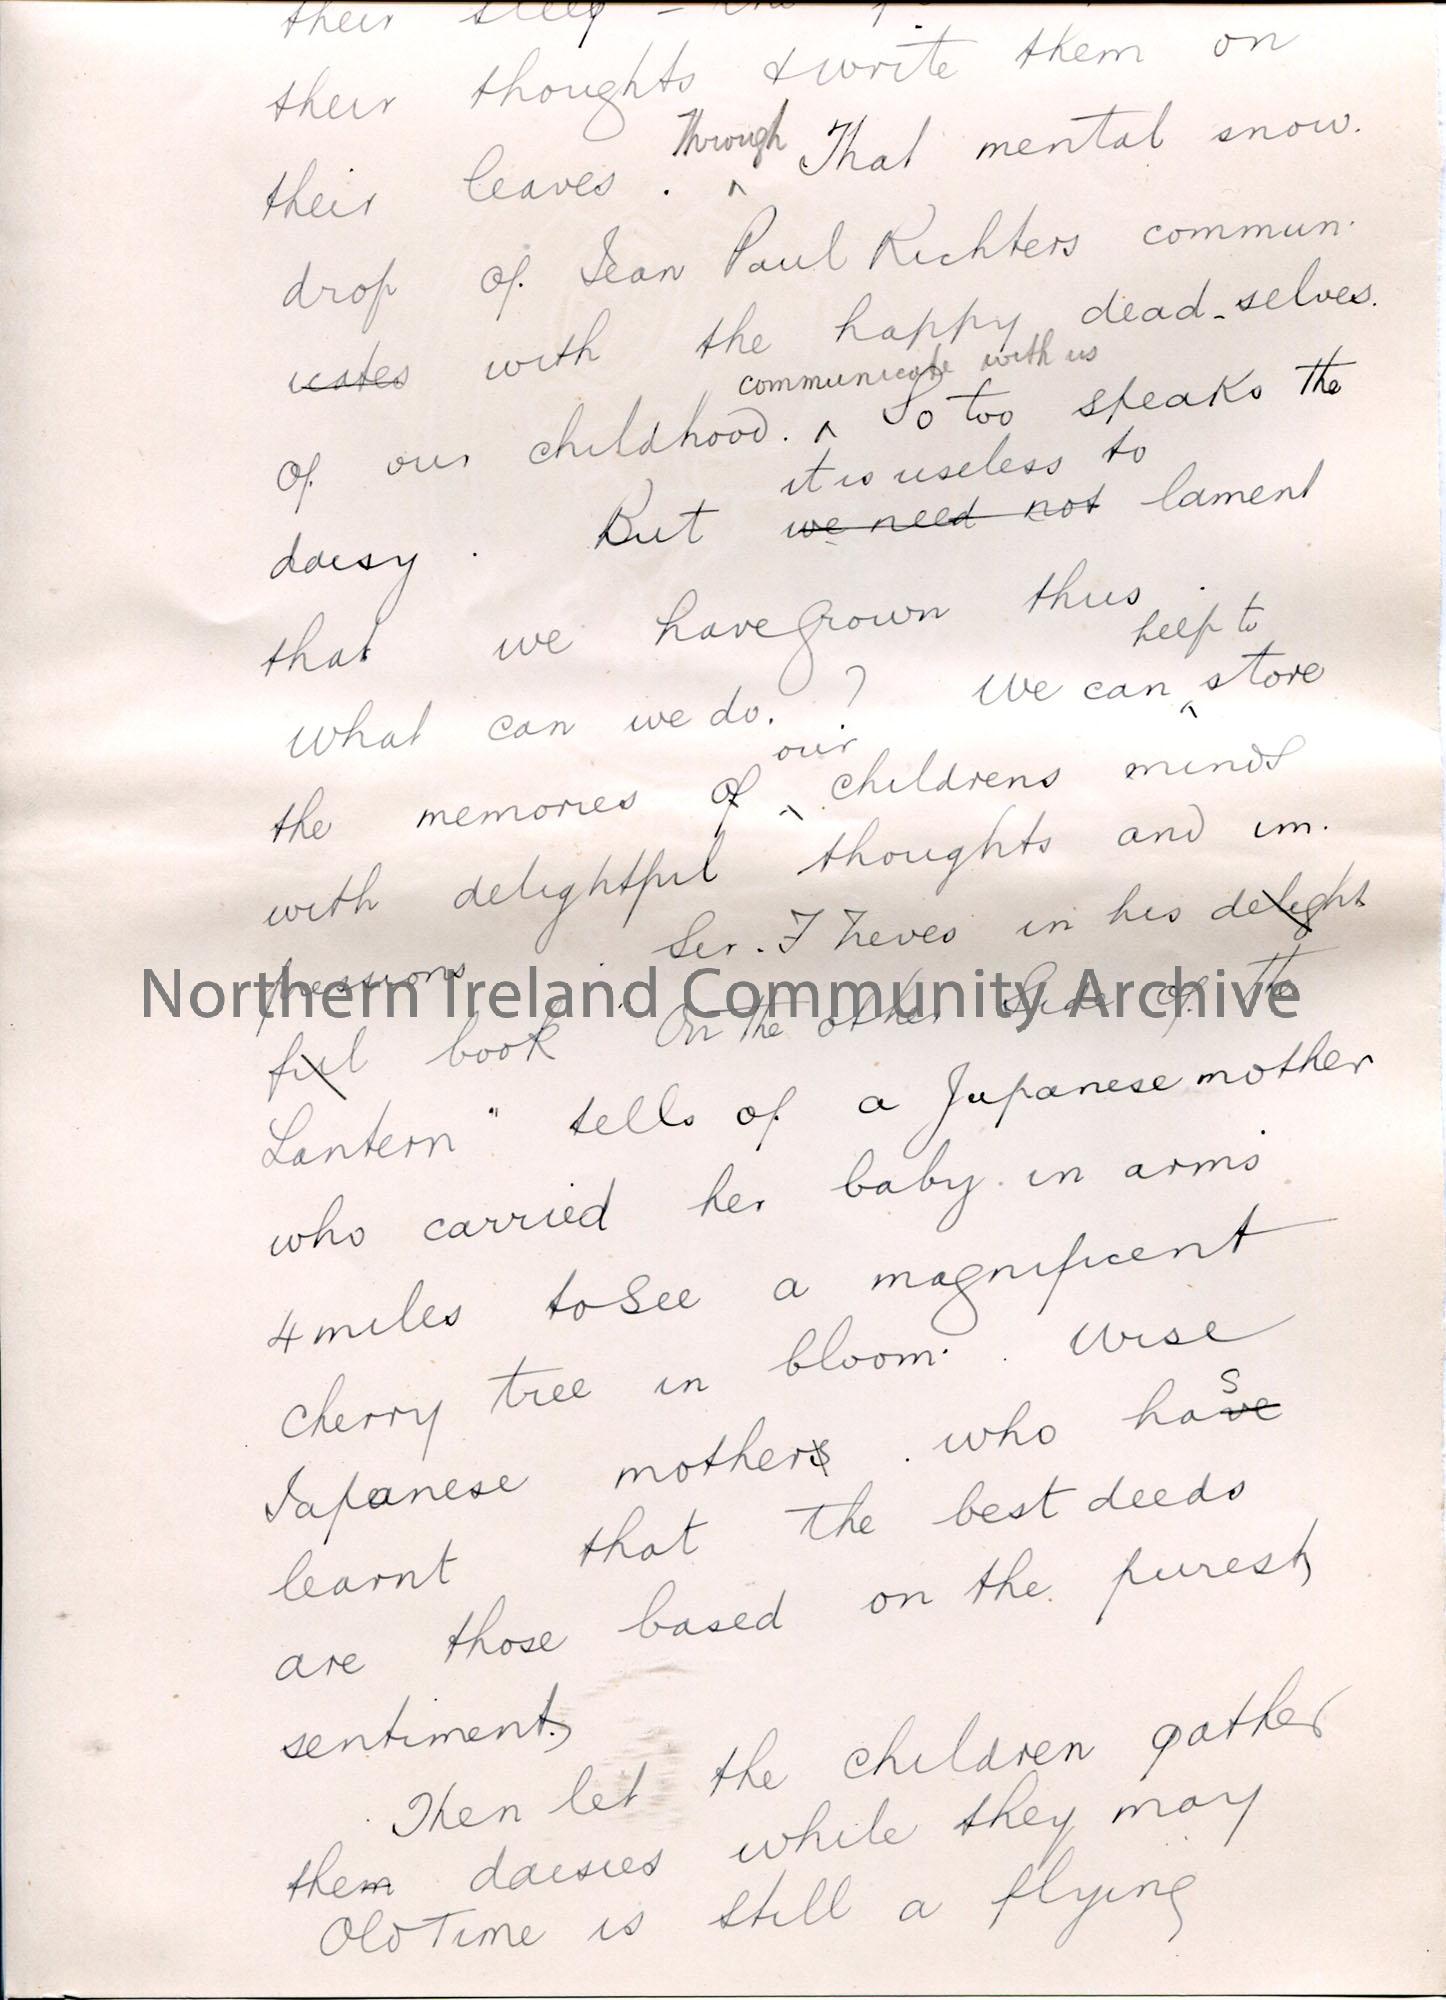 their sleep –
their thoughts & write them on
their leaves. Through ^ That mental snow.
drop of Jean Paul Richters commun.
icates with the happy dead-selves.
of our childhood. ^ communicate with us So too speaks the
daisy. But we need not it is useless to lament
that we have grown thus.
What can we do.? We can ^ help to store
the memories of ^ our childrens minds
with delightful thoughts and im.
pressions. Ser. F Treves in his delight
ful book "On the other Side of the
Lantern" tells of a Japanese mother
who carried her baby in arms
4 miles to See a magnificent
Cherry tree in bloom. Wise
Japanese mothers who haves
learnt that the best deeds
are those based on the purest,
sentiment,
Then let the children gather
them daisies while they may
Old Time is still a flying
Northern Ireland Community Archive